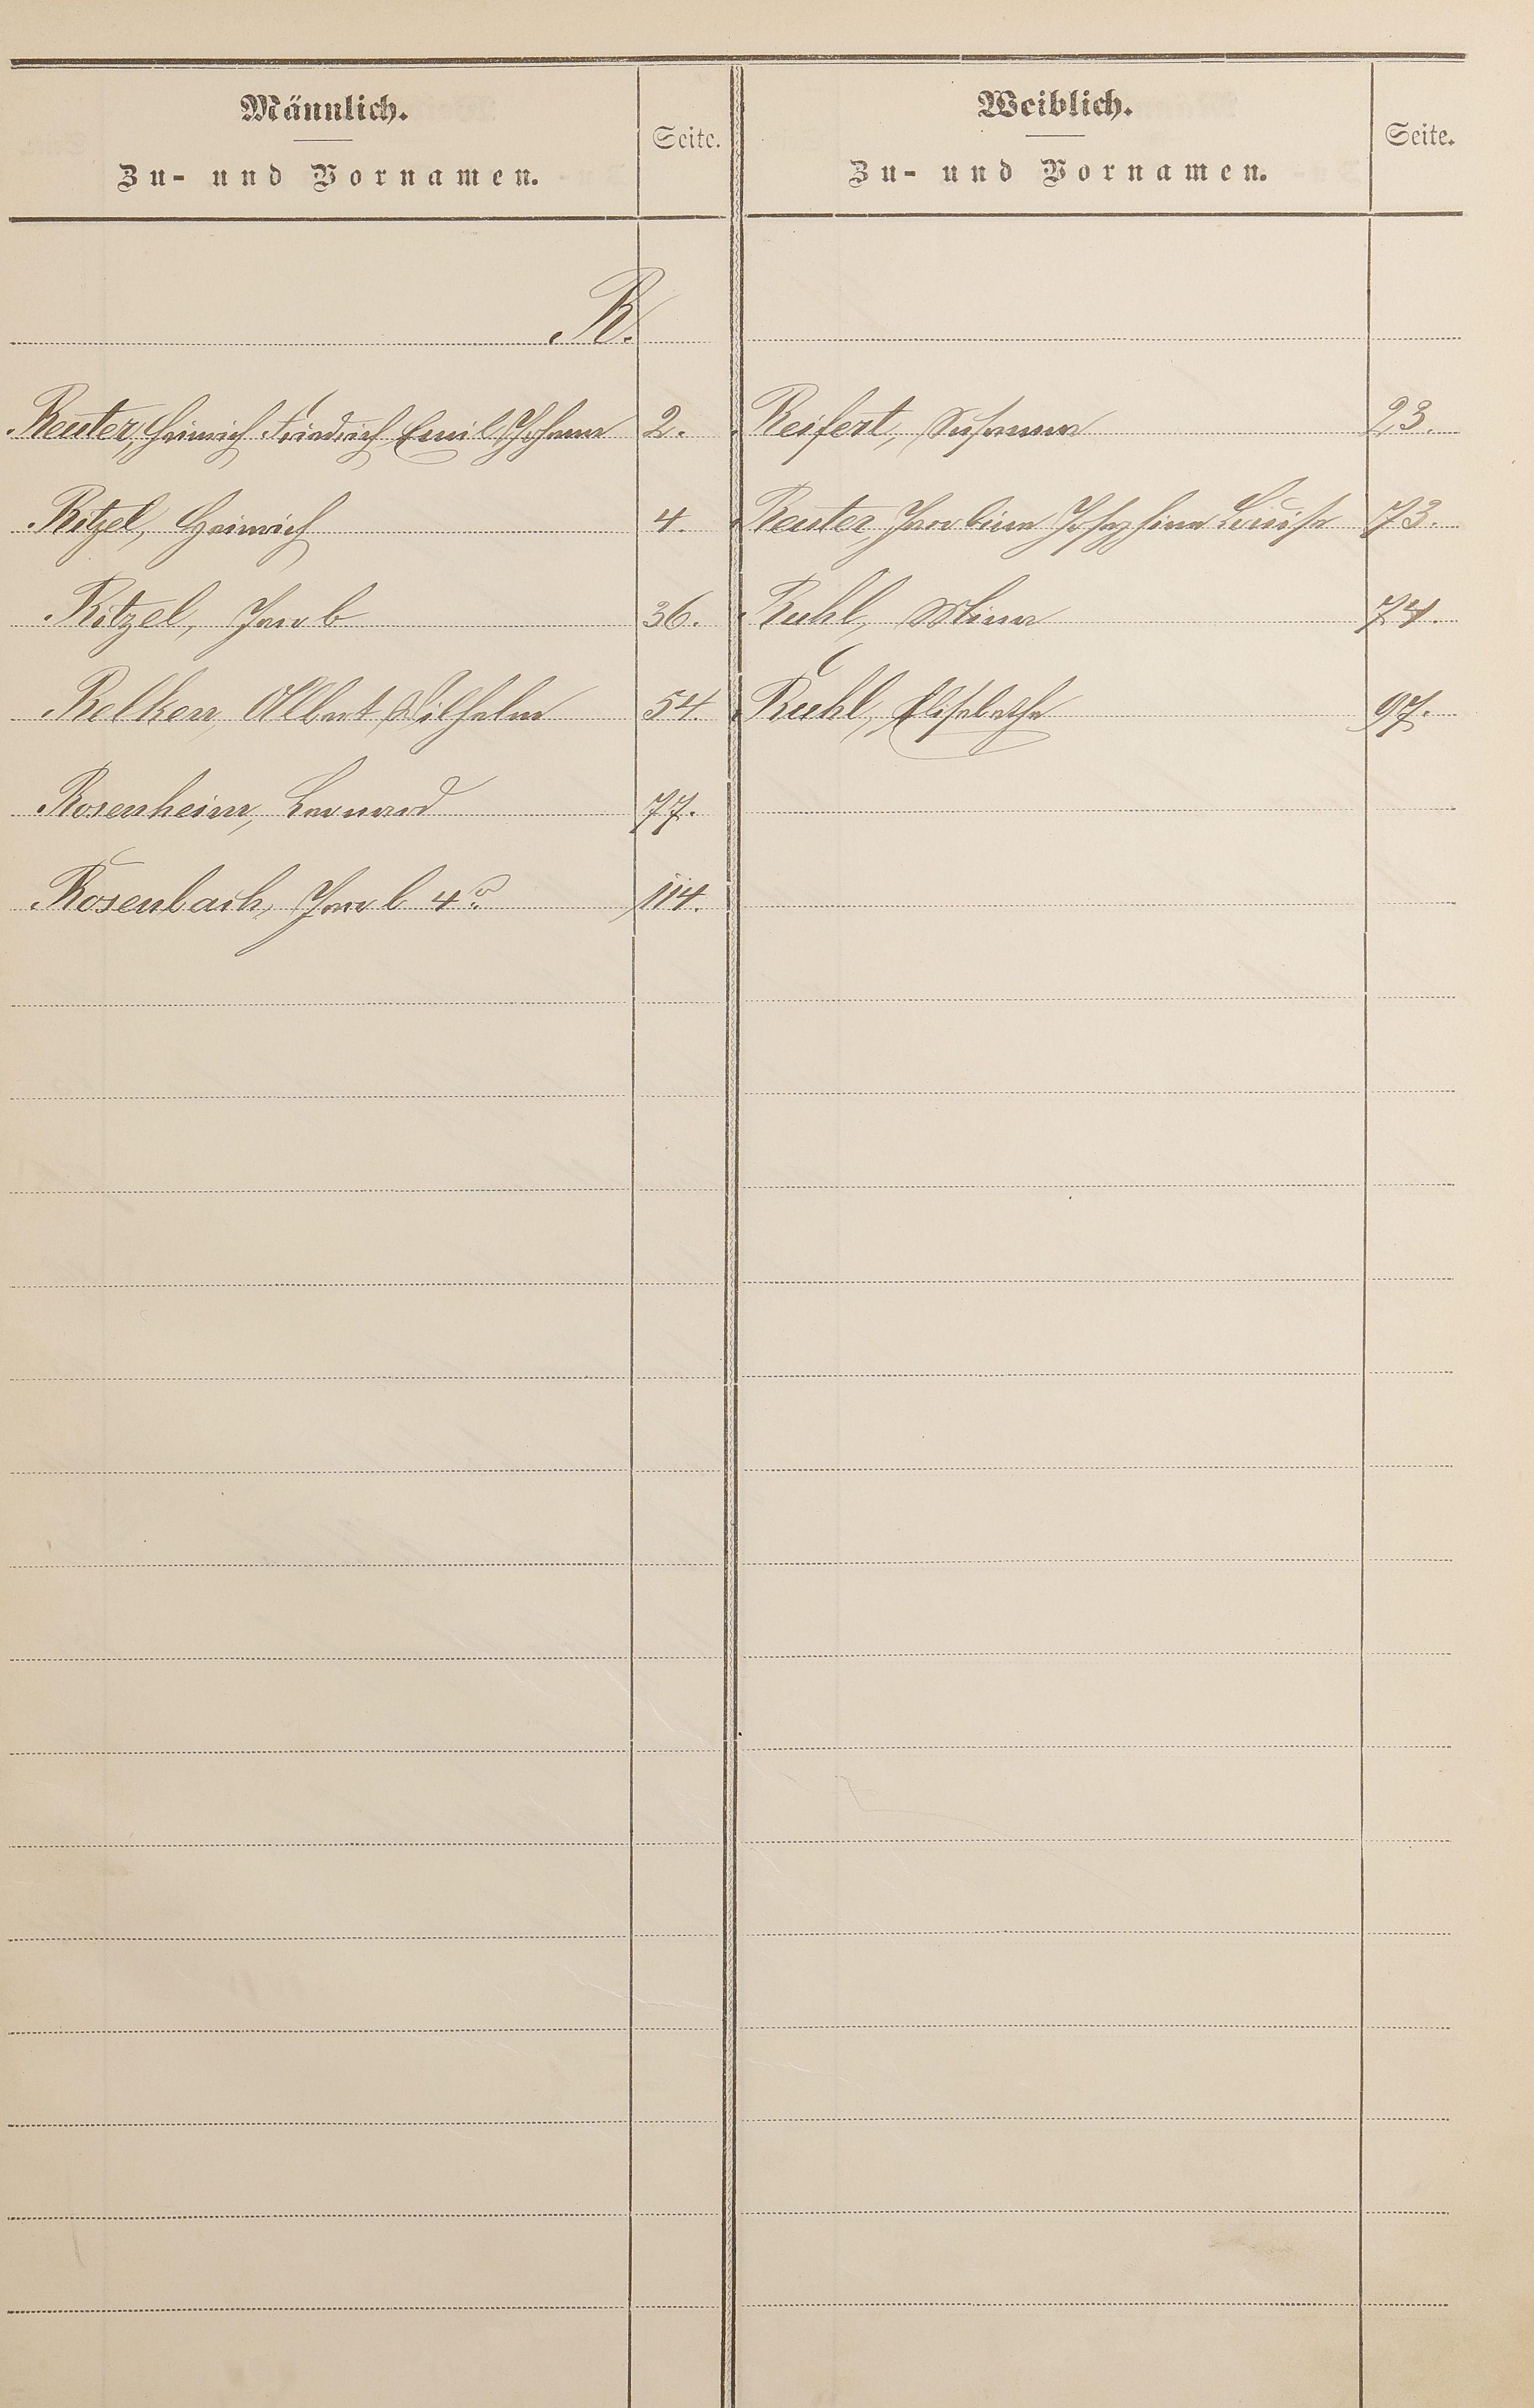 Männlich.
Zu- und Vornamen.
Seite.
Weiblich.
Zu- und Vornamen.
Seite.
R.
Reuter, Heinrich Friedrich Emil Johann 2.
Ritzel, Heinrich 4.
Ritzel, Jacob 36.
Relken, Albert Wilhelm 54.
Rosenheim, Leonard 77.
Rosenbach, Jacob 4r. 114.
Reifert, Susanna 23.
Reuter, Jacobine Josephine Luise 73.
Ruhl, Mina 74.
Ruhl, Elisabethe 97.